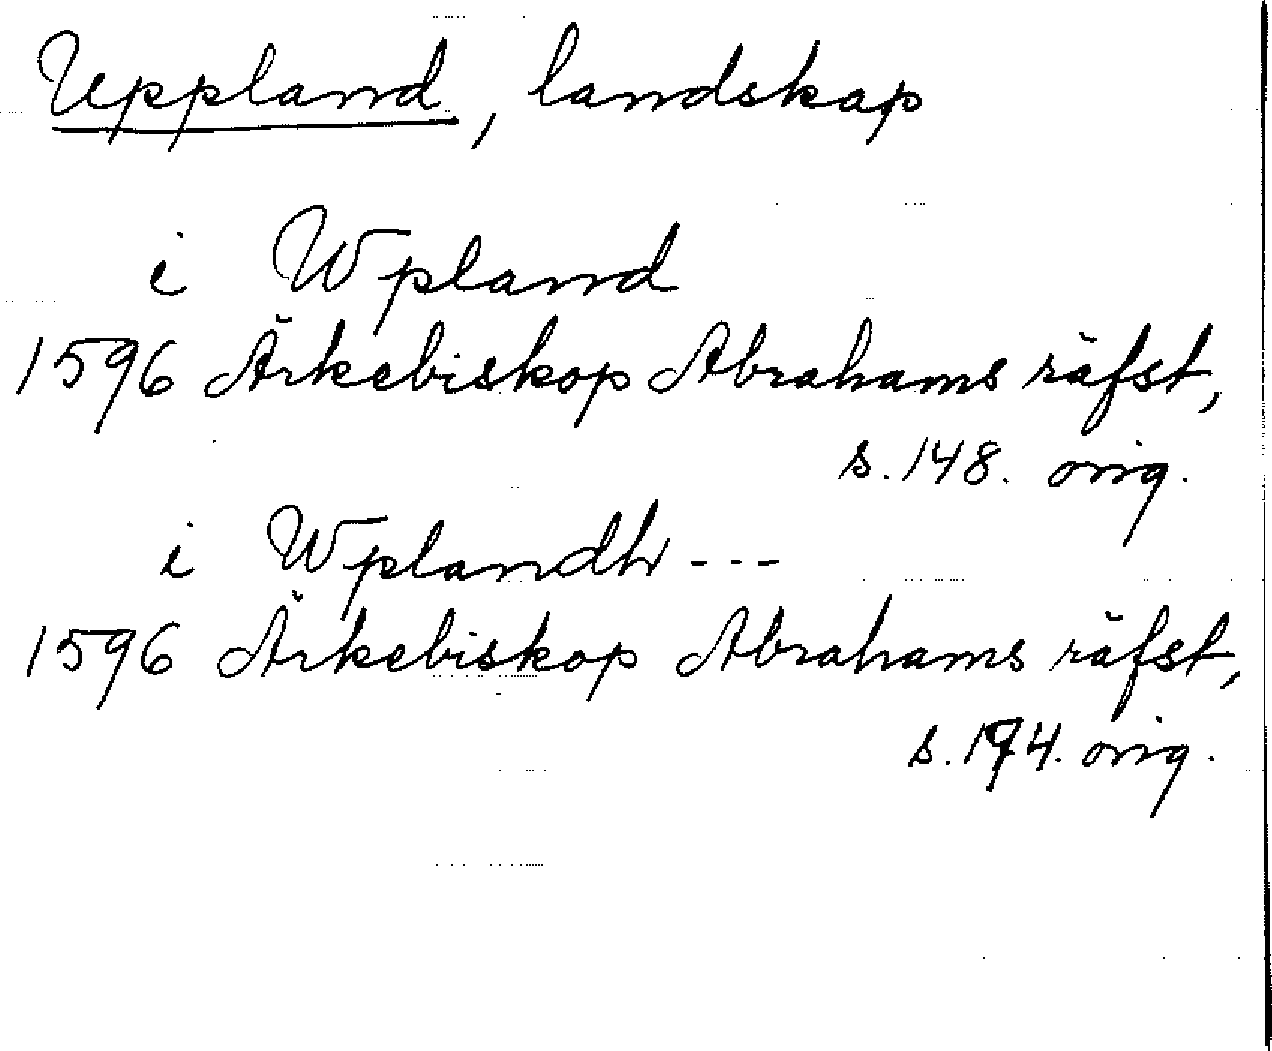 Uppland, landskap
i Wpland
1596 Ärkebiskop Abrahams räfst,
s. 148. orig.
i Wplandh ---
1596 Ärkebiskop Abrahams räfst,
s. 174. orig.